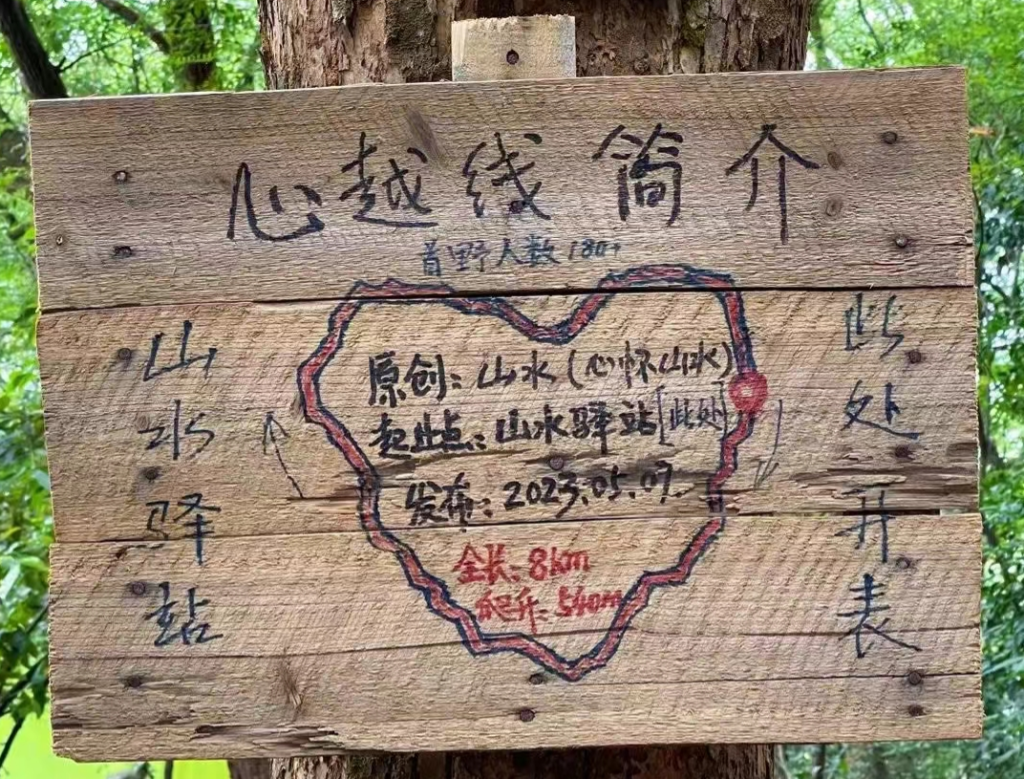 心越线简介
首野人数180+
山水驿站
原创：山水（心怀山水）
起止点：山水驿站[此处]
发布：2023.05.07
全长：8km
爬升：540m
此处开表